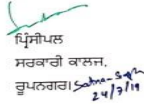 ਪ੍ਰਿੰਸੀਪਲ
ਸਰਕਾਰੀ ਕਾਲਜ,
ਰੂਪਨਗਰ।
24/7/19